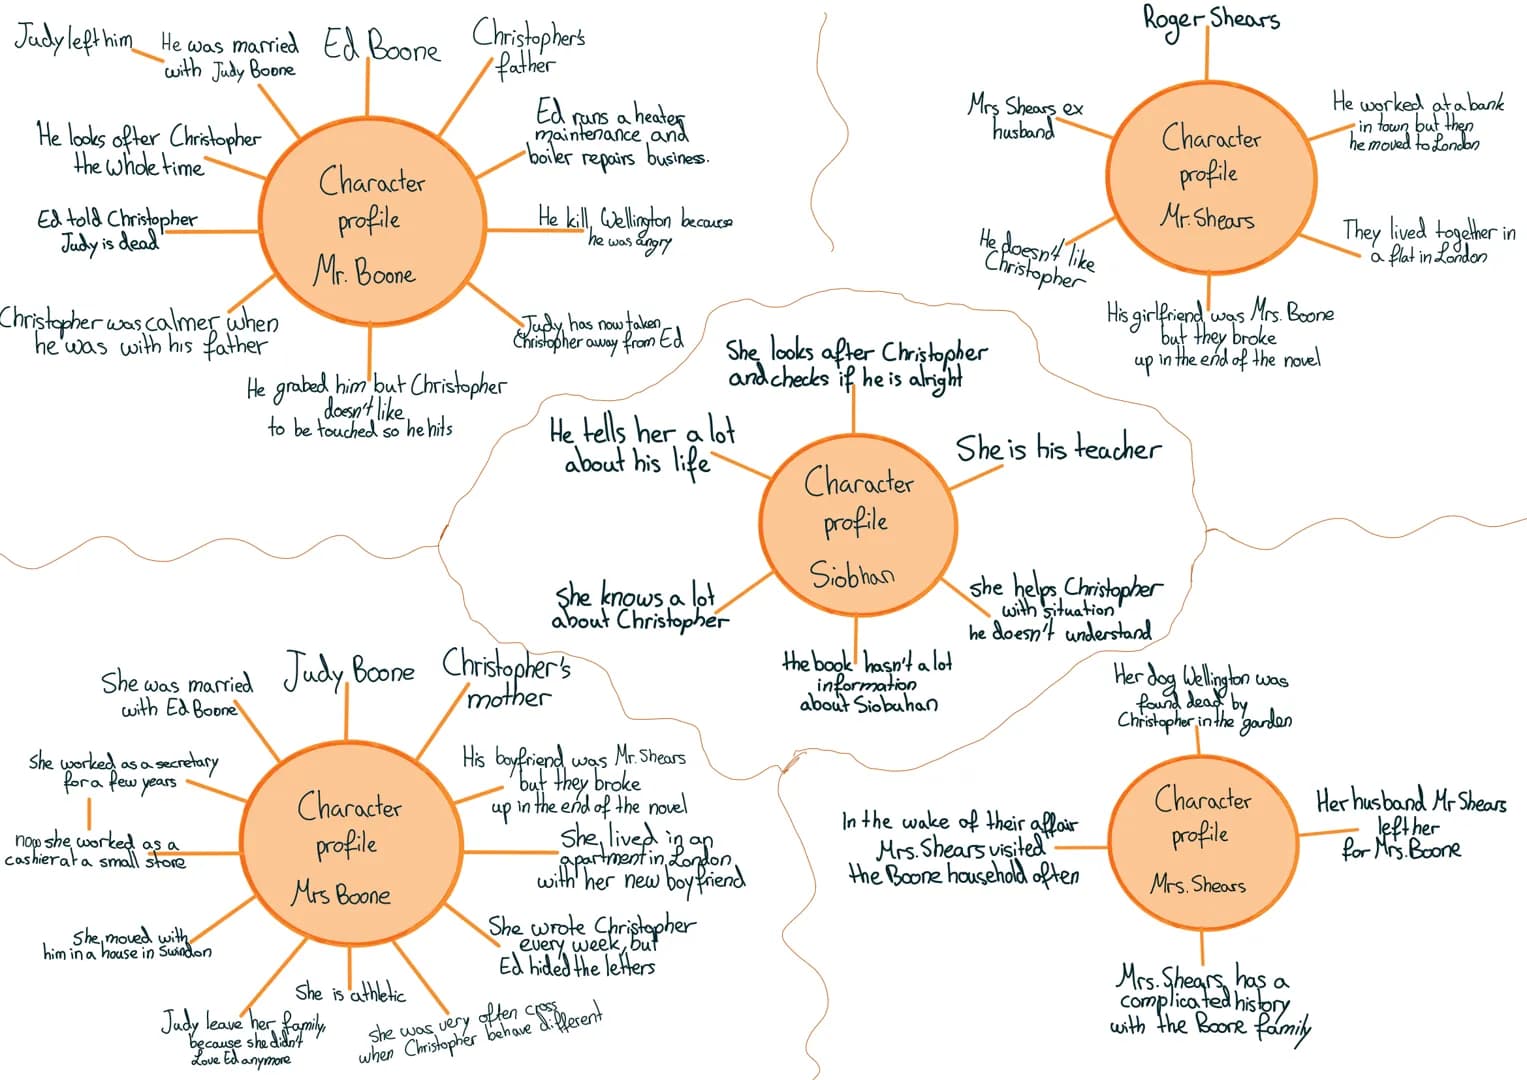 Judy left him
He was married
with Judy Boone
Ed Boone
Christopher's
father
He looks after Christopher
the whole time
Ed runs a heater
maintenance and
boiler repairs business.
Character
profile
Mr. Boone
Ed told Christopher
Judy is dead
He kill Wellington because
he was angry
Christopher was calmer when
he was with his father
Judy has now taken
Christopher away from Ed
He grabed him but Christopher
doesn't like
to be touched so he hits
Roger Shears
Mrs Shears ex
husband
He worked at a bank
in town but then
he moved to London
Character
profile
Mr. Shears
He doesn't like
Christopher
They lived together in
a flat in London
His girlfriend was Mrs. Boone
but they broke
up in the end of the novel
She looks after Christopher
and checks if he is alright
He tells her a lot
about his life
She is his teacher
Character
profile
Siobhan
She knows a lot
about Christopher
she helps Christopher
with situation
he doesn't understand
the book hasn't a lot
information
about Siobuhan
She was married
with Ed Boone
Judy Boone
Christopher's
mother
She worked as a secretary
for a few years
His boyfriend was Mr. Shears
but they broke
up in the end of the novel
Character
profile
Mrs Boone
now she worked as a
cashier at a small store
She lived in an
apartment in London
with her new boyfriend
She moved with
him in a house in Swindon
She wrote Christopher
every week, but
Ed hided the letters
Judy leave her family,
because she didn't
Love Ed anymore
She is athletic
she was very often cross
when Christopher behave different
Her dog Wellington was
found dead by
Christopher in the garden
In the wake of their affair
Mrs. Shears visited
the Boone household often
Character
profile
Mrs. Shears
Her husband Mr Shears
left her
for Mrs. Boone
Mrs. Shears has a
complicated history
with the Boone family